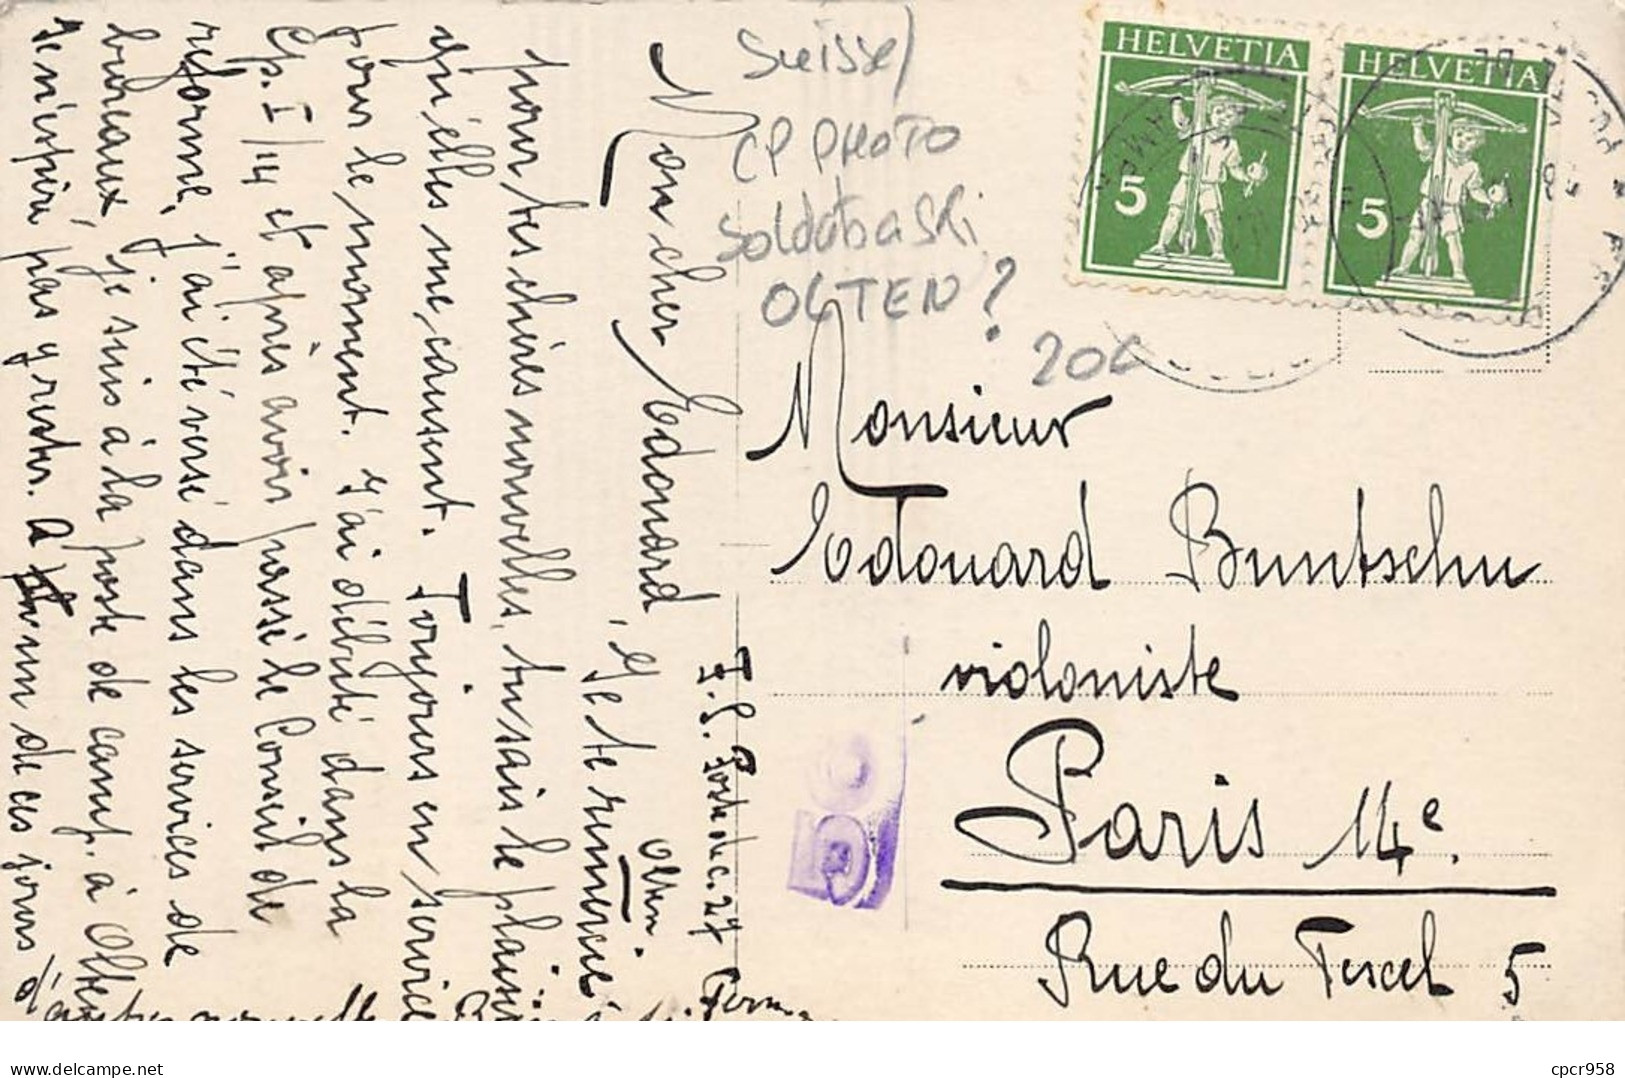 Mon cher Edouard, Je te remercie
pour tes chères nouvelles, tu sais le plaisir
qu'elles me causent. Toujours en service
pour le moment. J'ai débuté dans la
Cp. I/14 et après avoir passé le Conseil de
réforme, j'ai été versé dans les services de
bureaux, je suis à la poste de camp. à Olten
je n'espère pas y rester. A un de ces jours
d'autres nouvelles
Olten.
Poste de c. 27
Suisse
CP PHOTO
Soldat
OLTEN?
20c
HELVETIA
5
HELVETIA
5
Monsieur
Edouard Buntschu
violoniste
Paris 14e.
Rue du Texel 5
delcampe.net
cpcr958